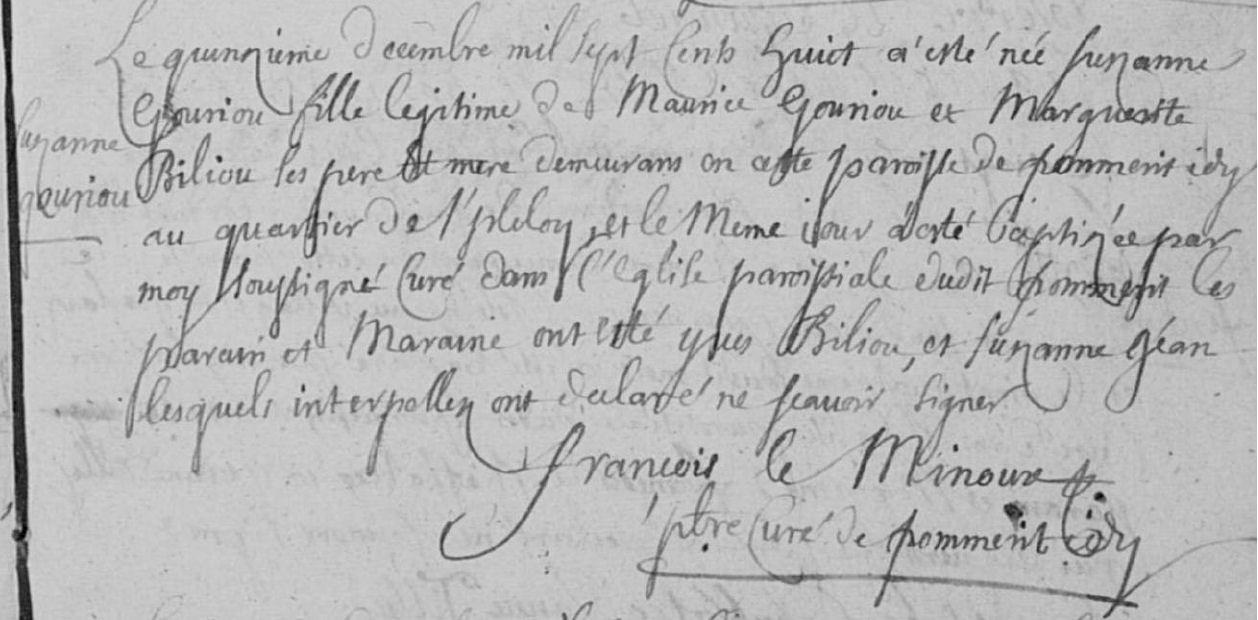 Le quinzieme decembre mil sept cents huict a esté née suzanne
Gouriou fille legitime de Maurice Gouriou et Marguerite
suzanne
Biliou ses pere et mere demeurans en cette paroisse de pommerit idy
gouriou
au quartier de et le meme iour a esté baptizée par
moy soussigné Curé dans l'eglise paroissiale dudit pommerit les
parain et Maraine ont esté yves Biliou, et suzanne Géan
lesquels interpellez ont declaré ne scavoir signer
francois le Minoux
pbre Curé de pommerit idy